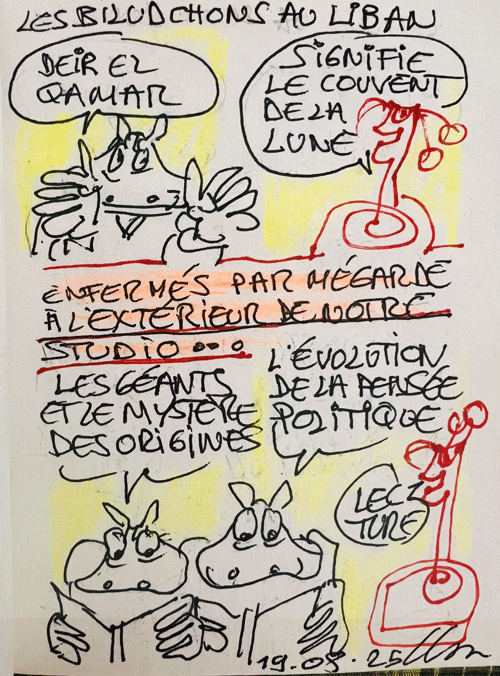 LES BILUDCHONS AU LIBAN
DEIR EL
QAMAR
SIGNIFIE
LE COUVENT
DE LA
LUNE
ENFERMÉS PAR MÉGARDE
À L'EXTÉRIEUR DE NOTRE
STUDIO...
LES GÉANTS
ET LE MYSTÈRE
DES ORIGINES
L'ÉVOLUTION
DE LA PENSÉE
POLITIQUE
LEC
TURE